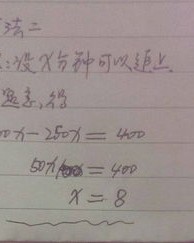 法二
:设x分钟可以追上.
题意,得
0x-250x=400
50x=400
x=8